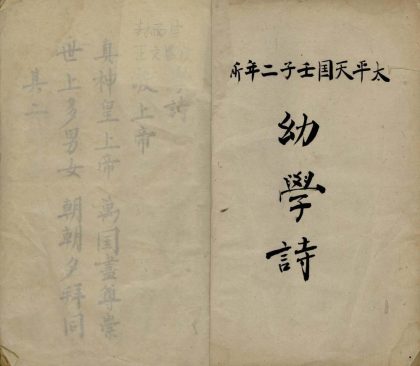 太平天囯壬子二年所
幼學詩
上帝
真神皇上帝 萬国盡尊崇
世上多男女 朝朝夕拜同
其二